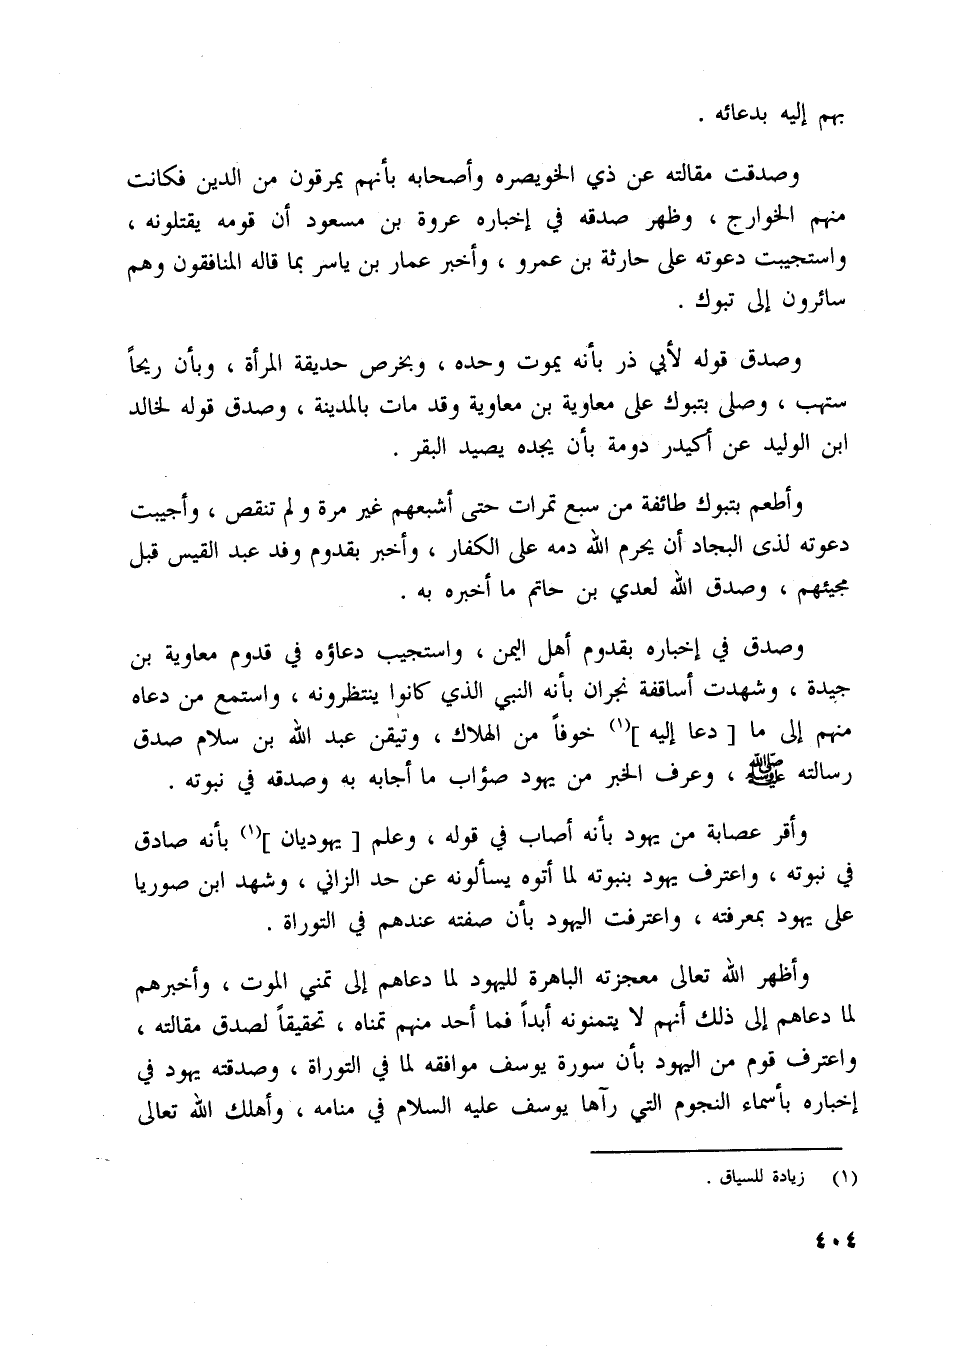 بهم إليه بدعائه .
وصدقت مقالته عن ذي الخويصره وأصحابه بأنهم يمرقون من الدين فكانت
منهم الخوارج ، وظهر صدقه في إخباره عروة بن مسعود أن قومه يقتلونه ،
واستجيبت دعوته على حارثة بن عمرو ، وأخبر عمار بن ياسر بما قاله المنافقون وهم
سائرون إلى تبوك .
وصدق قوله لأبي ذر بأنه يموت وحده ، وبخرص حديقة المرأة ، وبأن ريحاً
ستهب ، وصلى بتبوك على معاوية بن معاوية وقد مات بالمدينة ، وصدق قوله لخالد
ابن الوليد عن أكيدر دومة بأن يجده يصيد البقر .
وأطعم بتبوك طائفة من سبع تمرات حتى أشبعهم غير مرة ولم تنقص ، وأجيبت
دعوته لذى البجاد أن يحرم الله دمه على الكفار ، وأخبر بقدوم وفد عبد القيس قبل
مجيئهم ، وصدق الله لعدي بن حاتم ما أخبره به .
وصدق في إخباره بقدوم أهل اليمن ، واستجيب دعاؤه في قدوم معاوية بن
جيدة ، وشهدت أساقفة نجران بأنه النبي الذي كانوا ينتظرونه ، واستمع من دعاه
منهم إلى ما [ دعا إليه ](١) خوفاً من الهلاك ، وتيقن عبد الله بن سلام صدق
رسالته ﷺ ، وعرف الخبر من يهود صؤاب ما أجابه به وصدقه في نبوته .
وأقر عصابة من يهود بأنه أصاب في قوله ، وعلم [ يهوديان ](١) بأنه صادق
في نبوته ، واعترف يهود بنبوته لما أتوه يسألونه عن حد الزاني ، وشهد ابن صوريا
على يهود بمعرفته ، واعترفت اليهود بأن صفته عندهم في التوراة .
وأظهر الله تعالى معجزته الباهرة لليهود لما دعاهم إلى تمني الموت ، وأخبرهم
لما دعاهم إلى ذلك أنهم لا يتمنونه أبداً فما أحد منهم تمناه ، تحقيقاً لصدق مقالته ،
واعترف قوم من اليهود بأن سورة يوسف موافقه لما في التوراة ، وصدقته يهود في
إخباره بأسماء النجوم التي رآها يوسف عليه السلام في منامه ، وأهلك الله تعالى
(١) زيادة للسياق .
٤٠٤